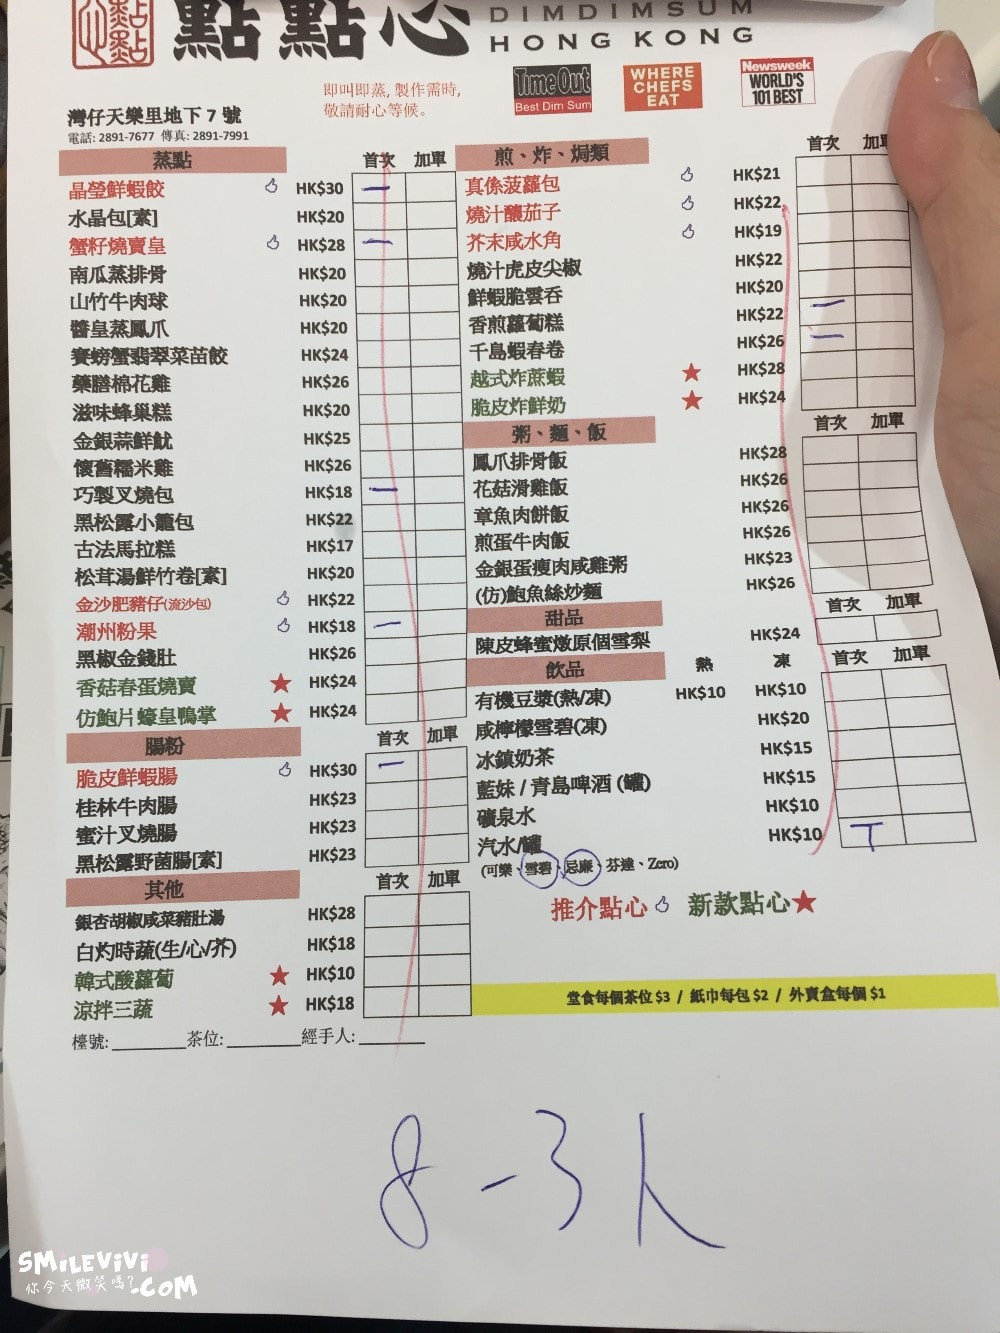 點點心 DIMDIMSUM
HONG KONG
即叫即蒸, 製作需時,
敬請耐心等候。
TimeOut
Best Dim Sum
WHERE
CHEFS
EAT
Newsweek
WORLD'S
101 BEST
灣仔天樂里地下 7 號
電話: 2891-7677 傳真: 2891-7991
蒸點 首次 加單
晶瑩鮮蝦餃 HK$30 一
水晶包[素] HK$20
蟹籽燒賣皇 HK$28 一
南瓜蒸排骨 HK$20
山竹牛肉球 HK$20
醬皇蒸鳳爪 HK$20
賽螃蟹翡翠菜苗餃 HK$24
藥膳棉花雞 HK$26
滋味蜂巢糕 HK$20
金銀蒜鮮魷 HK$25
懷舊糯米雞 HK$26
巧製叉燒包 HK$18 一
黑松露小籠包 HK$22
古法馬拉糕 HK$17
松茸湯鮮竹卷[素] HK$20
金沙肥豬仔(流沙包) HK$22
潮州粉果 HK$18 一
黑椒金錢肚 HK$26
香菇春蛋燒賣 ★ HK$24
仿鮑片蠔皇鴨掌 ★ HK$24
腸粉 首次 加單
脆皮鮮蝦腸 HK$30 一
桂林牛肉腸 HK$23
蜜汁叉燒腸 HK$23
黑松露野菌腸[素] HK$23
其他 首次 加單
銀杏胡椒咸菜豬肚湯 HK$28
白灼時蔬(生/心/芥) HK$18
韓式酸蘿蔔 ★ HK$10
涼拌三蔬 ★ HK$18
檯號: 茶位: 經手人:
煎、炸、焗類 首次 加單
真係菠蘿包 HK$21
燒汁釀茄子 HK$22
芥末咸水角 HK$19
燒汁虎皮尖椒 HK$22
鮮蝦脆雲吞 HK$20
香煎蘿蔔糕 HK$22 一
千島蝦春卷 HK$26 一
越式炸蔗蝦 ★ HK$28
脆皮炸鮮奶 ★ HK$24
粥、麵、飯 首次 加單
鳳爪排骨飯 HK$28
花菇滑雞飯 HK$26
章魚肉餅飯 HK$26
煎蛋牛肉飯 HK$26
金銀蛋瘦肉咸雞粥 HK$23
(仿)鮑魚絲炒麵 HK$26
甜品 首次 加單
陳皮蜂蜜燉原個雪梨 HK$24
飲品 熱 凍 首次 加單
有機豆漿(熱/凍) HK$10 HK$10
咸檸檬雪碧(凍) HK$20
冰鎮奶茶 HK$15
藍妹 / 青島啤酒 (罐) HK$15
礦泉水 HK$10
汽水/罐 HK$10 T
(可樂、雪碧、忌廉、芬達、Zero)
推介點心 新款點心★
堂食每個茶位 $3 / 紙巾每包 $2 / 外賣盒每個 $1
8-3人
SMILEVIVI
你今天微笑嗎?.COM